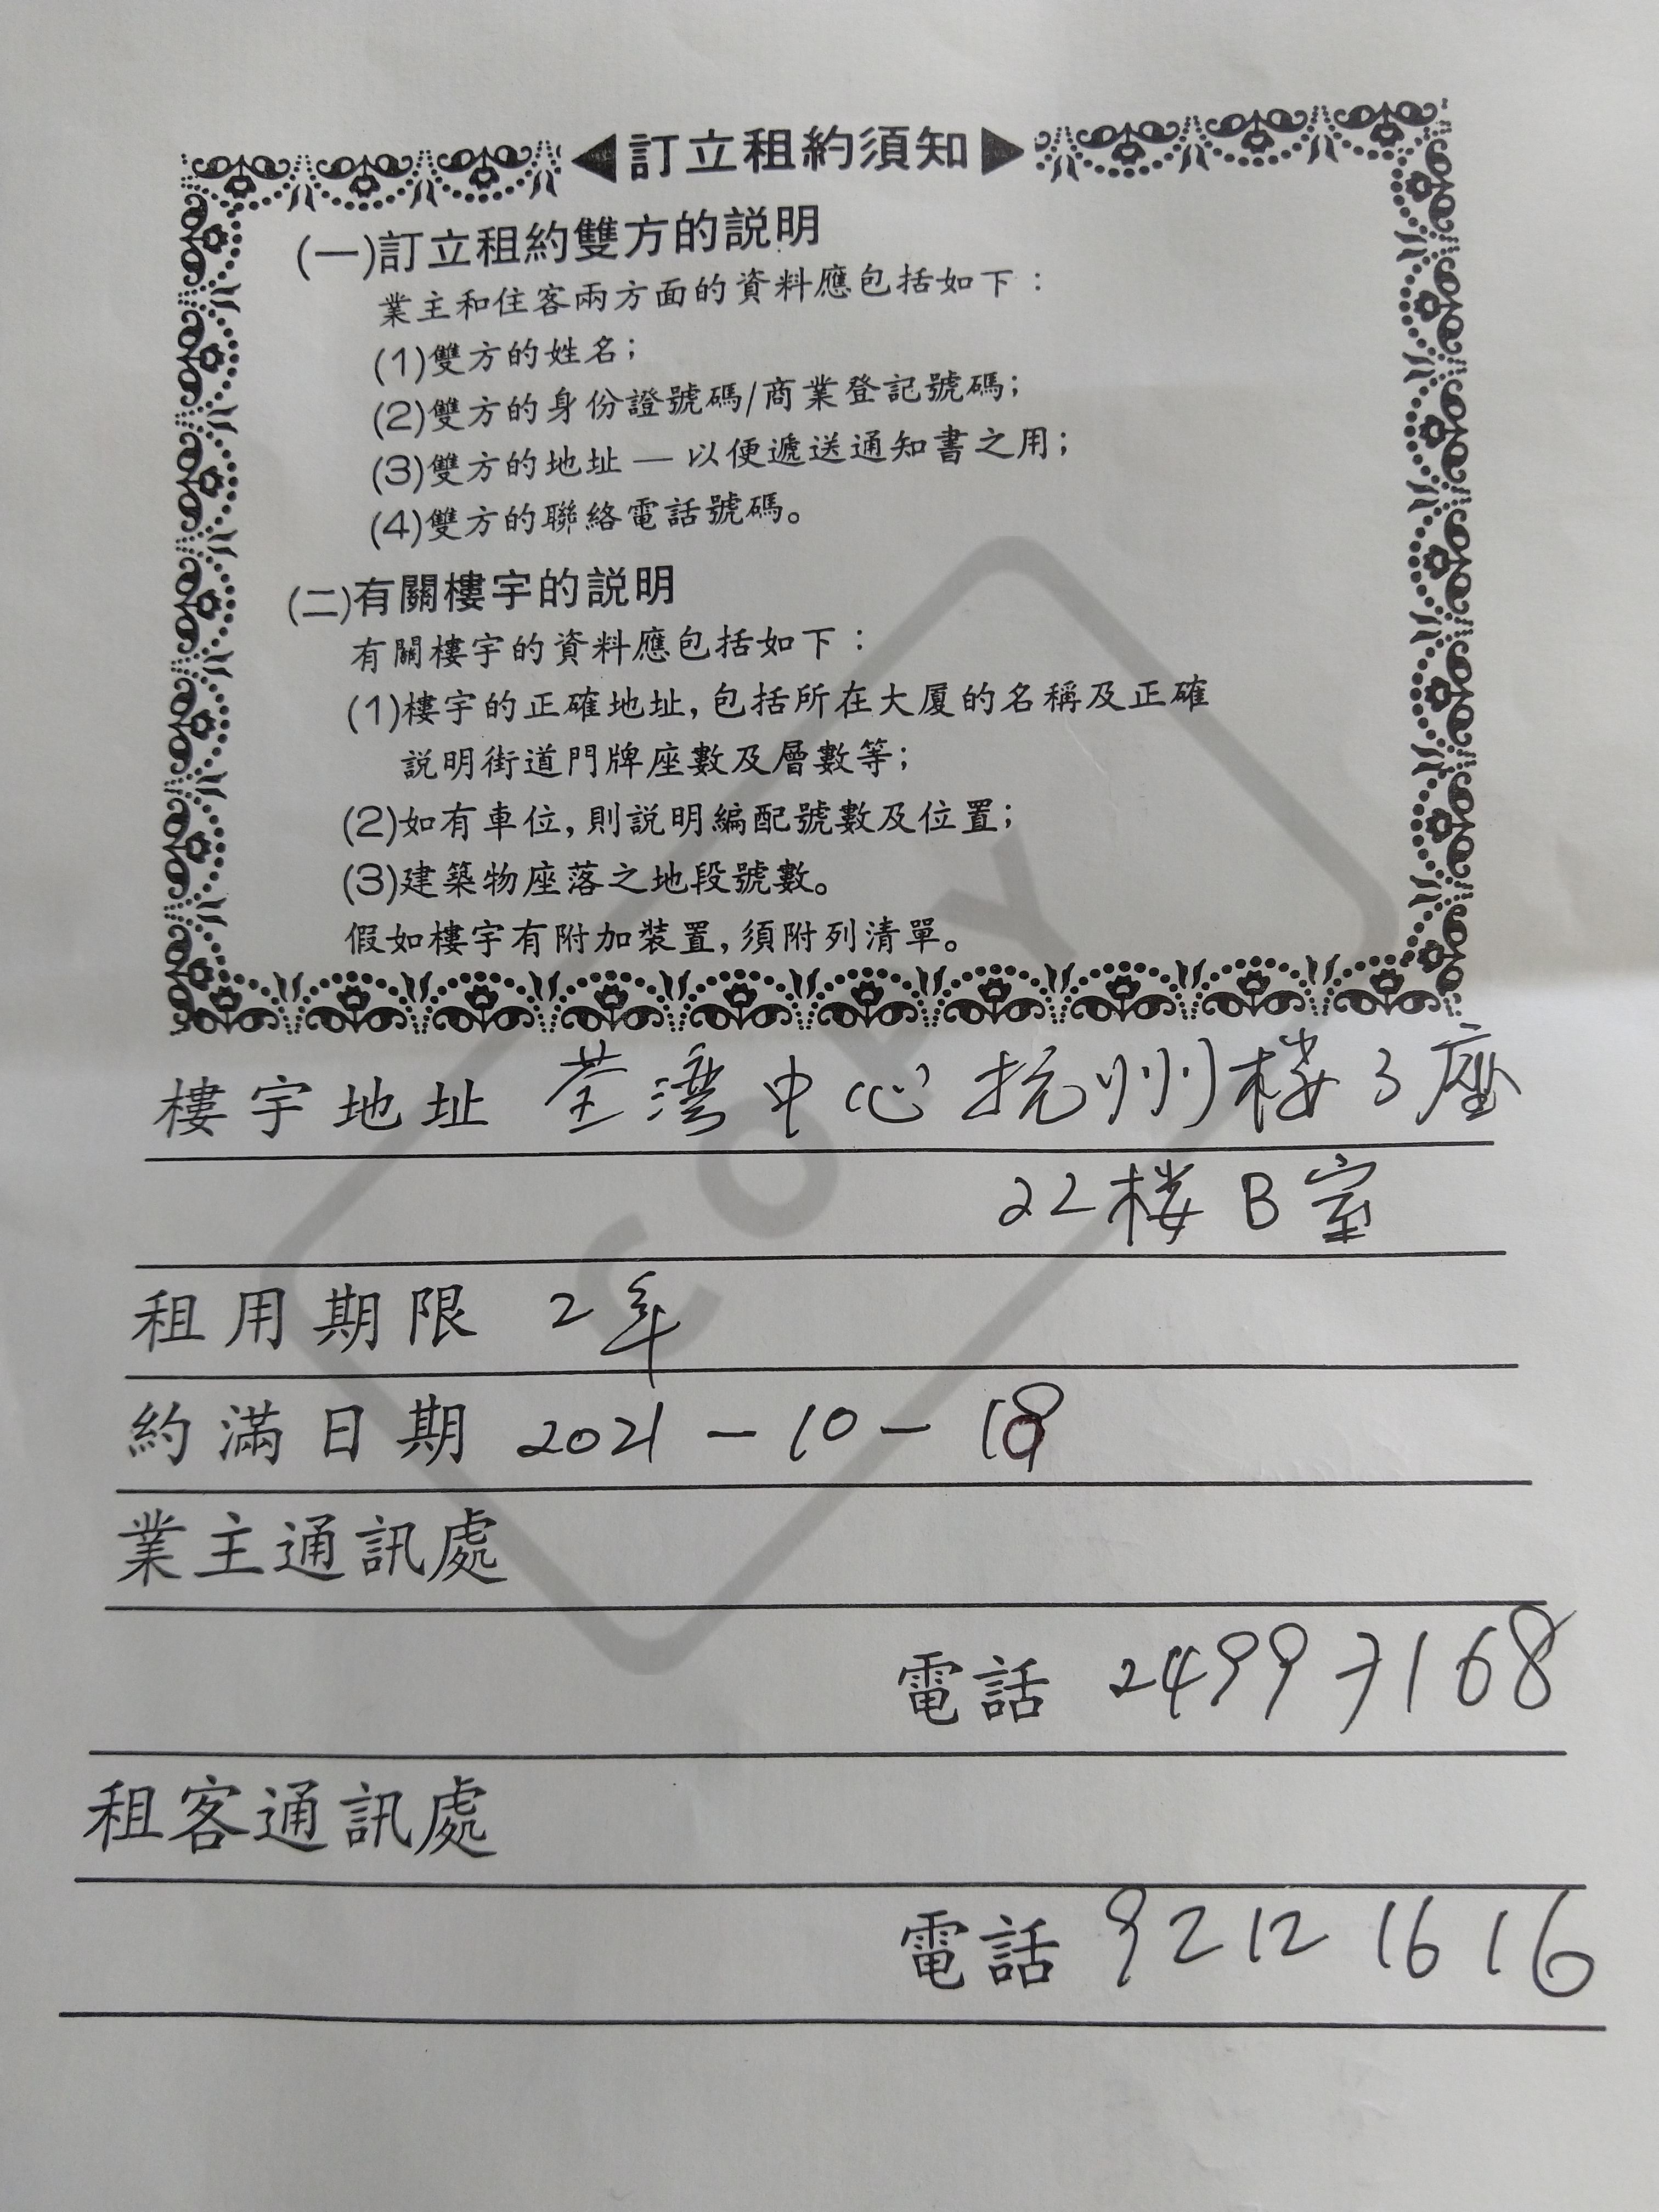 ◀訂立租約須知▶
(一)訂立租約雙方的説明
業主和住客兩方面的資料應包括如下：
(1)雙方的姓名；
(2)雙方的身份證號碼/商業登記號碼；
(3)雙方的地址 — 以便遞送通知書之用；
(4)雙方的聯絡電話號碼。
(二)有關樓宇的説明
有關樓宇的資料應包括如下：
(1)樓宇的正確地址，包括所在大厦的名稱及正確
説明街道門牌座數及層數等；
(2)如有車位，則説明編配號數及位置；
(3)建築物座落之地段號數。
假如樓宇有附加裝置，須附列清單。
COPY
樓宇地址 荃灣中心杭州楼3座
22楼B室
租用期限 2年
約滿日期 2021-10-18
業主通訊處
電話 24997168
租客通訊處
電話 92121616